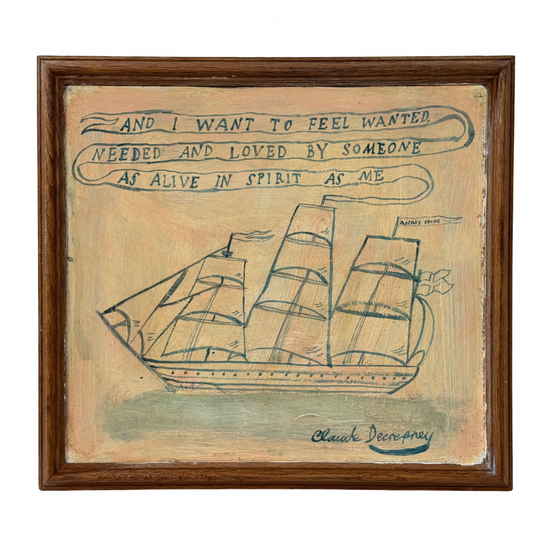 AND I WANT TO FEEL WANTED,
NEEDED AND LOVED BY SOMEONE
AS ALIVE IN SPIRIT AS ME
ANAIS NIN
Claude Decrepney